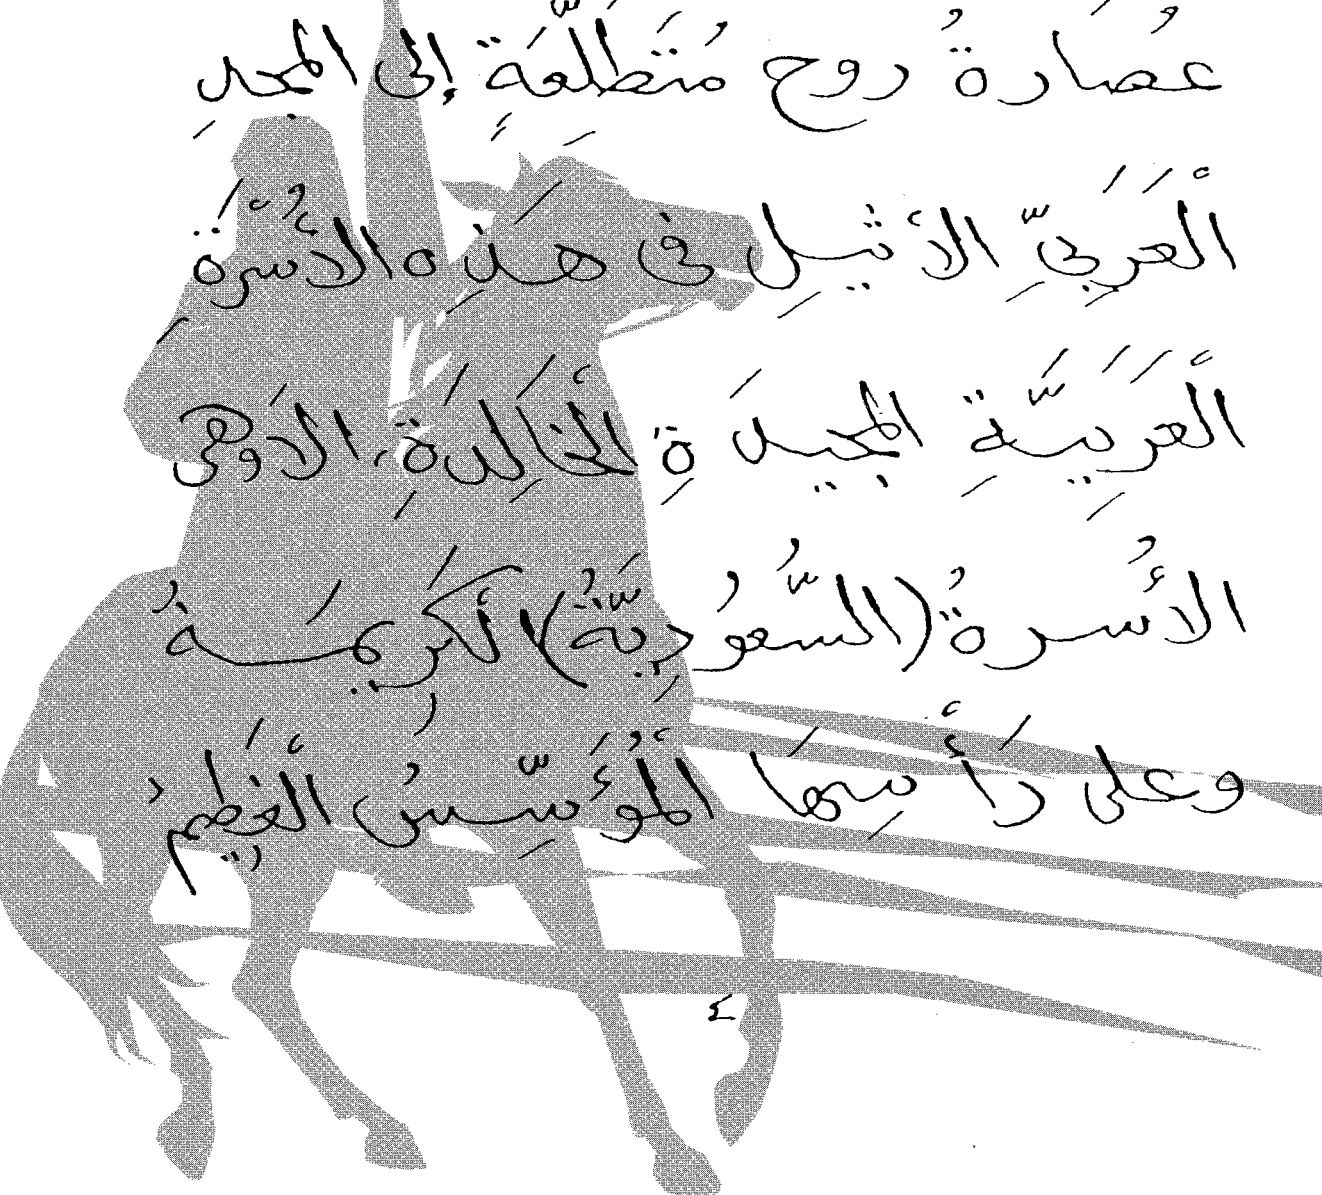 عُصَارةُ روح مُتَطَلِّعَةٍ إلى المجدِ
اَلْعَرَبيِّ الأَثيلِ في هَذِه الأُسْرَةِ
اَلْعَرَبيَّةِ المجيدَةِ اَلْخَالِدَةِ، الاَوهى
الأُسرةُ (السُّعُودِيَّةُ) اَلْكَرِيمَةُ
وعلى رَأْسِهَا اَلْمُؤَسِّسُ اَلْعَظِيمُ
٤